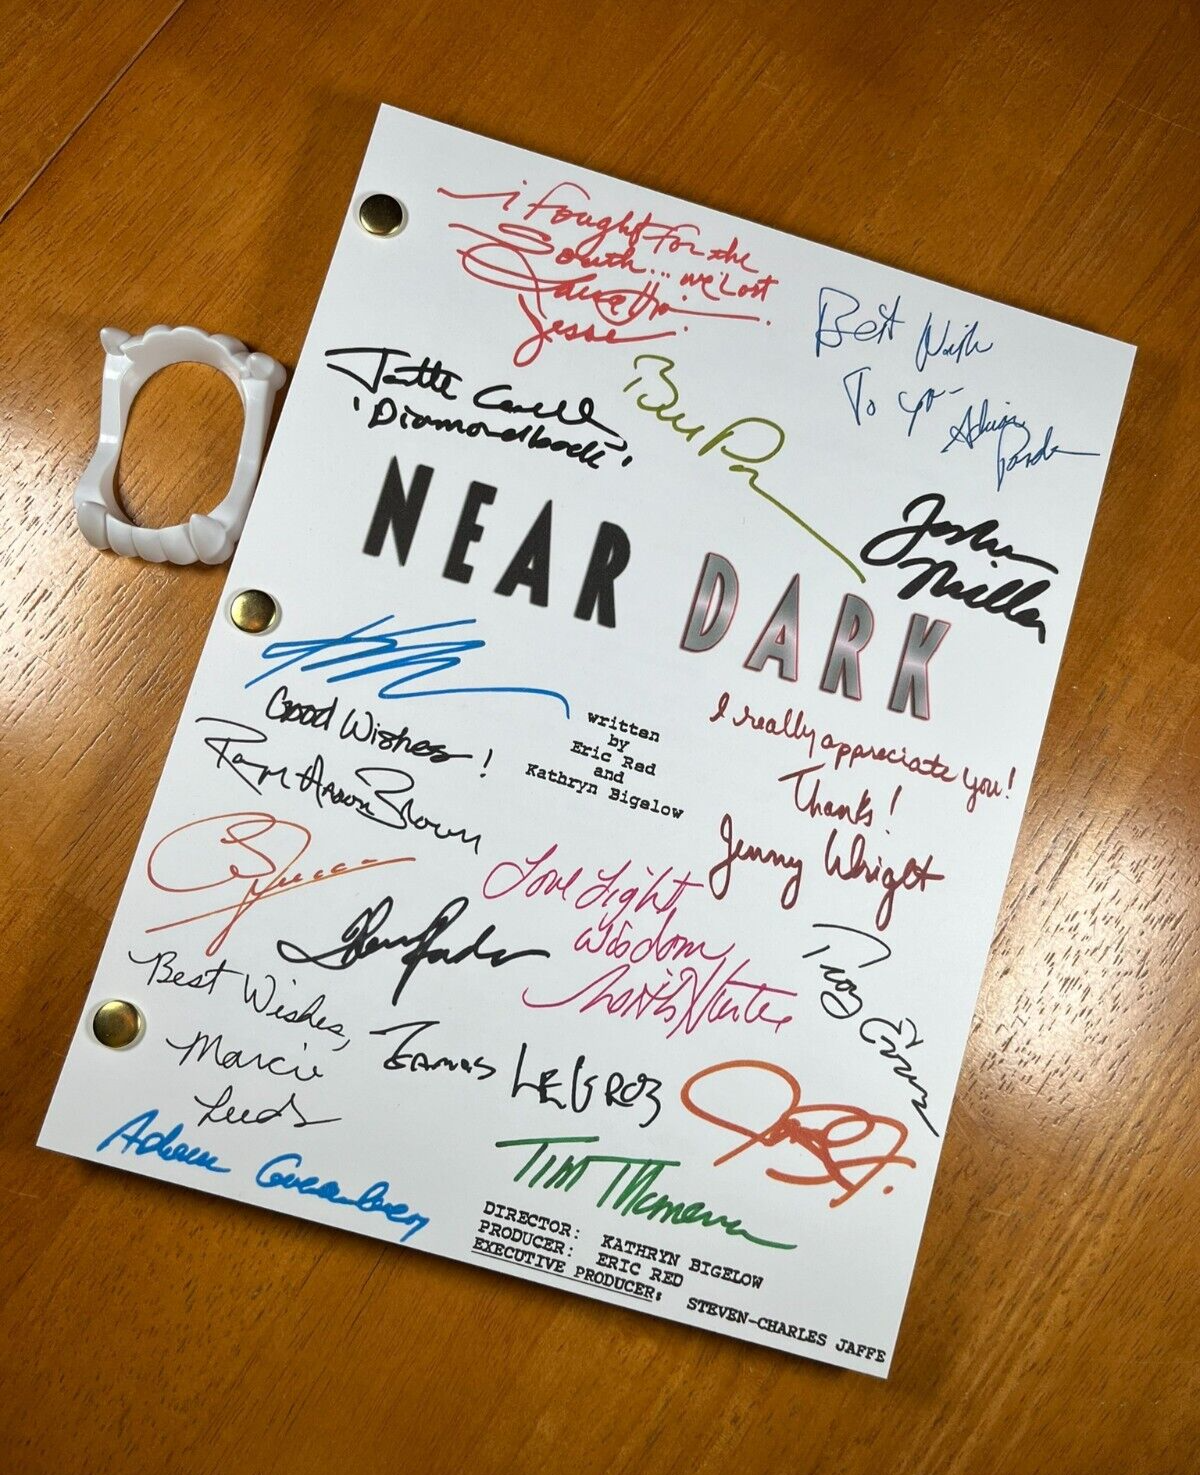 i Fought for the
South... we Lost
Jesse
Best Wish
To you
Adrian
Jenette
'Diamondback'
Bill Pax
Joshua
Miller
NEAR DARK
written
by
Eric Red
and
Kathryn Bigelow
I really appreciate you!
Thanks!
Jenny Wright
Good Wishes!
Roger Aaron Brown
Love Light
Wisdom
Troy Evans
Best Wishes,
Marcie
Leeds
James LeGros
Adam Greenberg
Tim Thomerson
DIRECTOR: KATHRYN BIGELOW
PRODUCER: ERIC RED
EXECUTIVE PRODUCER: STEVEN-CHARLES JAFFE